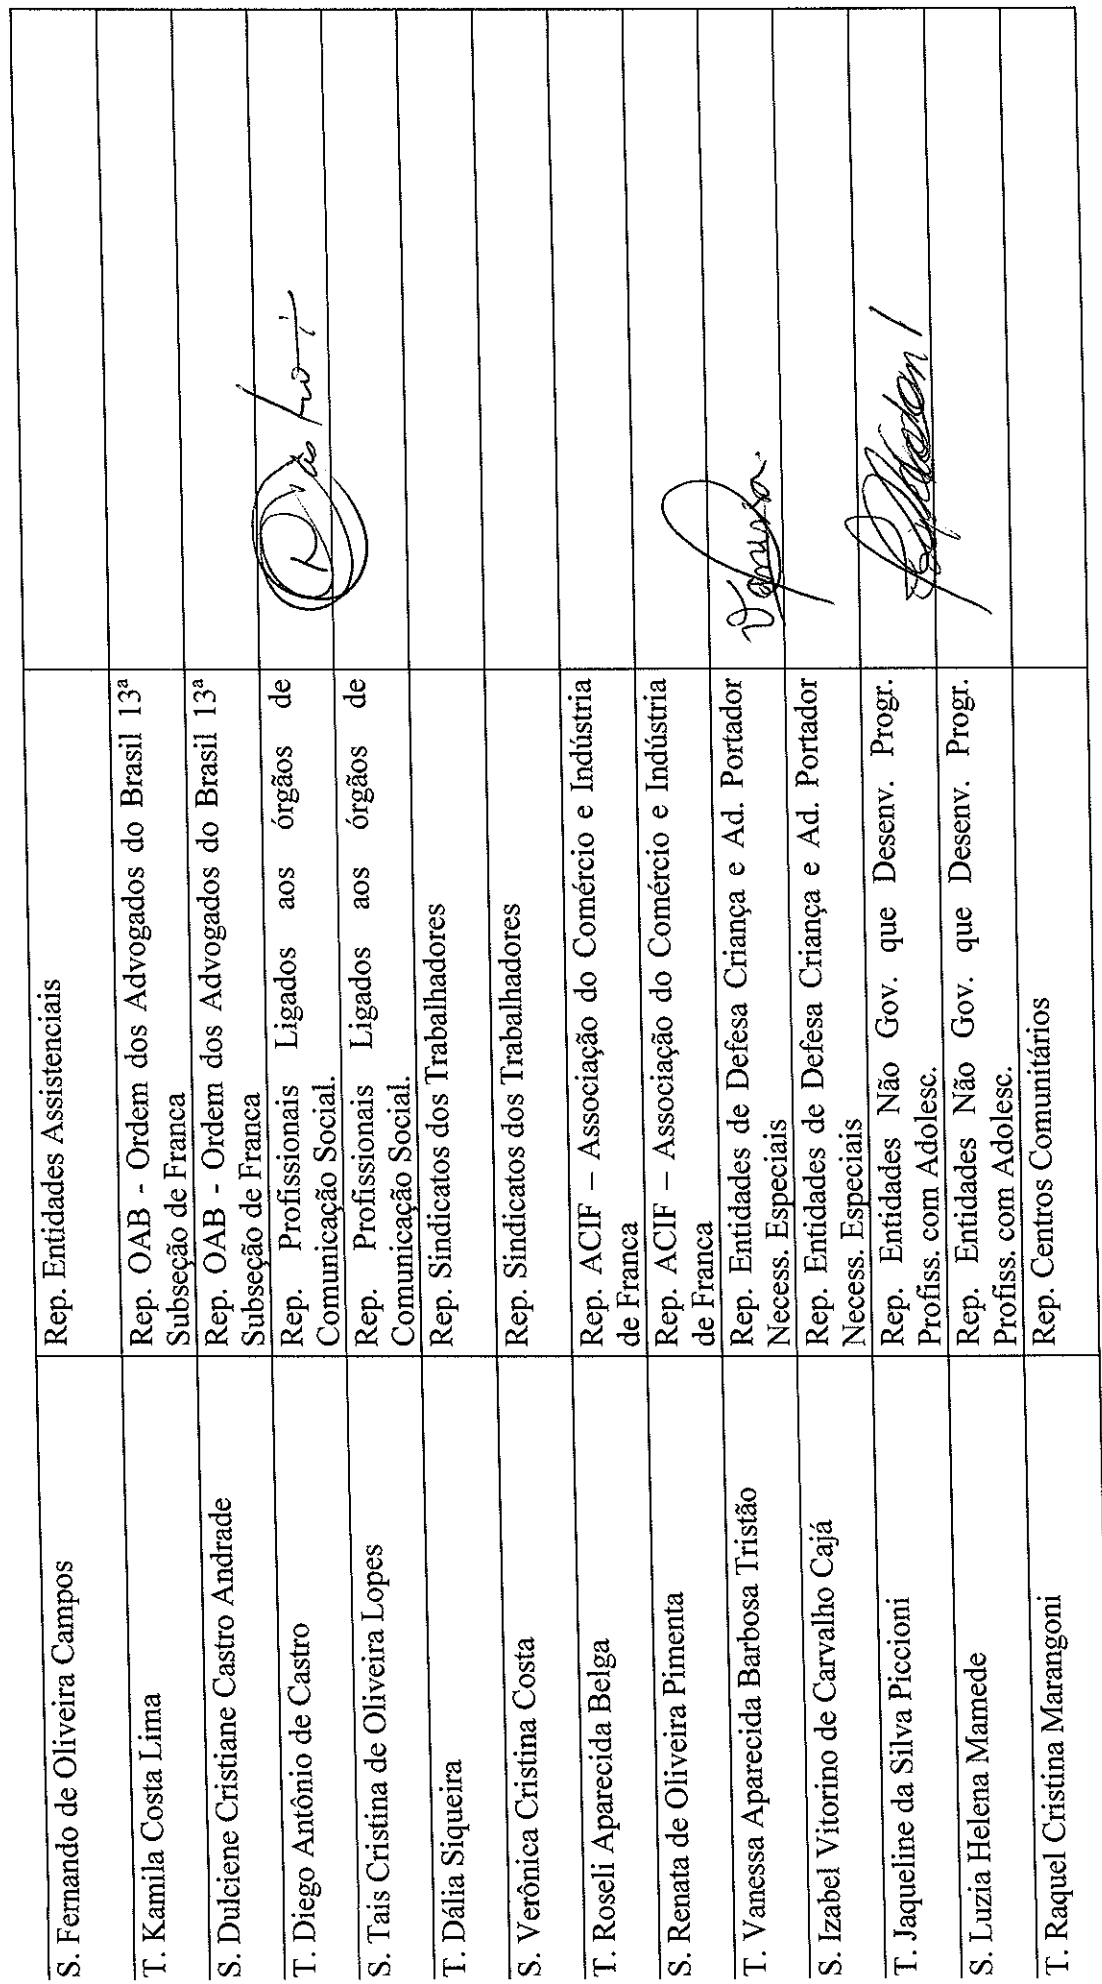 S. Fernando de Oliveira Campos
Rep. Entidades Assistenciais
T. Kamila Costa Lima
Rep. OAB - Ordem dos Advogados do Brasil 13ª
Subseção de Franca
S. Dulciene Cristiane Castro Andrade
Rep. OAB - Ordem dos Advogados do Brasil 13ª
Subseção de Franca
T. Diego Antônio de Castro
Rep. Profissionais Ligados aos órgãos de
Comunicação Social.
S. Tais Cristina de Oliveira Lopes
Rep. Profissionais Ligados aos órgãos de
Comunicação Social.
T. Dália Siqueira
Rep. Sindicatos dos Trabalhadores
S. Verônica Cristina Costa
Rep. Sindicatos dos Trabalhadores
T. Roseli Aparecida Belga
Rep. ACIF – Associação do Comércio e Indústria
de Franca
S. Renata de Oliveira Pimenta
Rep. ACIF – Associação do Comércio e Indústria
de Franca
T. Vanessa Aparecida Barbosa Tristão
Rep. Entidades de Defesa Criança e Ad. Portador
Necess. Especiais
S. Izabel Vitorino de Carvalho Cajá
Rep. Entidades de Defesa Criança e Ad. Portador
Necess. Especiais
T. Jaqueline da Silva Piccioni
Rep. Entidades Não Gov. que Desenv. Progr.
Profiss. com Adolesc.
S. Luzia Helena Mamede
Rep. Entidades Não Gov. que Desenv. Progr.
Profiss. com Adolesc.
T. Raquel Cristina Marangoni
Rep. Centros Comunitários